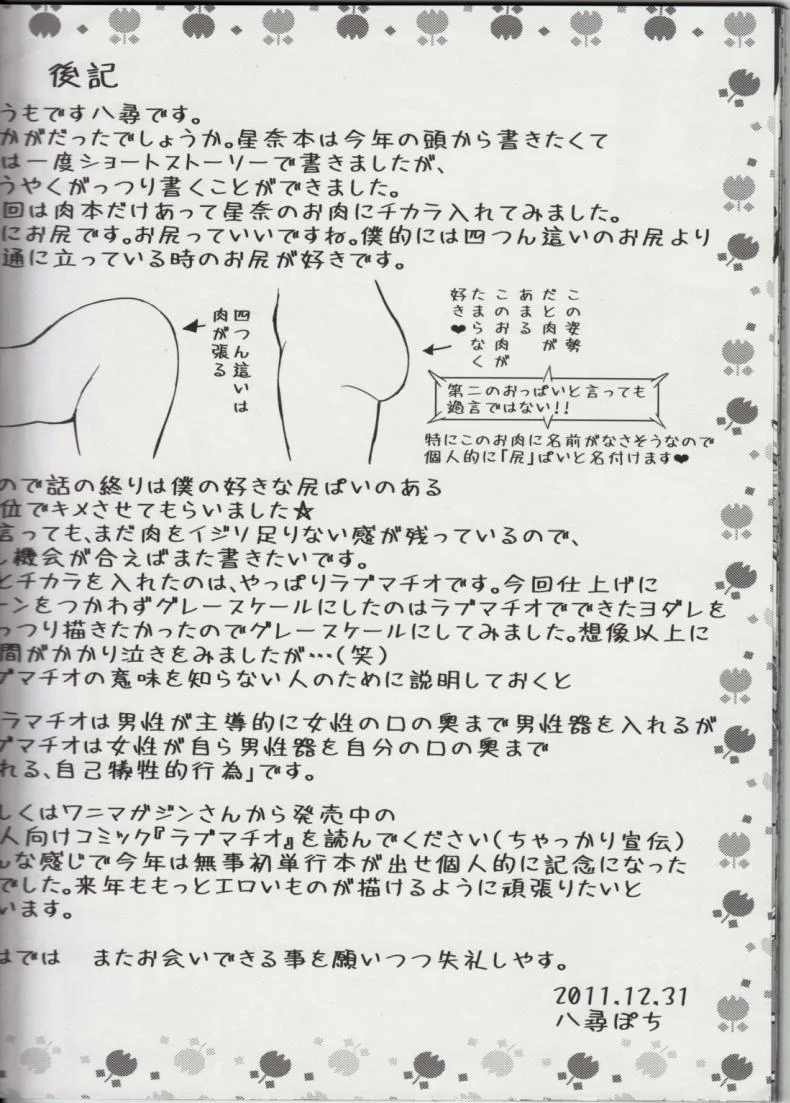 後記
うもです八尋です。
かがだったでしょうか。星奈本は今年の頭から書きたくて
は一度ショートストーリーで書きましたが、
うやくがっつり書くことができました。
回は肉本だけあって星奈のお肉にチカラ入れてみました。
にお尻です。お尻っていいですね。僕的には四つん這いのお尻より
通に立っている時のお尻が好きです。
四つん這いは
肉が張る
この姿勢
だとお肉が
あまる
このお肉が
たまらなく
好き♥
第二のおっぱいと言っても
過言ではない!!
特にこのお肉に名前がなさそうなので
個人的に「尻」ぱいと名付けます♥
ので話の終りは僕の好きな尻ぱいのある
位でキメさせてもらいました☆
言っても、まだ肉をイジリ足りない感が残っているので、
機会が合えばまた書きたいです。
とチカラを入れたのは、やっぱりラブマチオです。今回仕上げに
ーンをつかわずグレースケールにしたのはラブマチオでできたヨダレを
っつり描きたかったのでグレースケールにしてみました。想像以上に
間がかかり泣きをみましたが…(笑)
ブマチオの意味を知らない人のために説明しておくと
ラマチオは男性が主導的に女性の口の奥まで男性器を入れるが
ブマチオは女性が自ら男性器を自分の口の奥まで
れる、自己犠牲的行為」です。
しくはワニマガジンさんから発売中の
人向けコミック『ラブマチオ』を読んでください(ちゃっかり宣伝)
んな感じで今年は無事初単行本が出せ個人的に記念になった
でした。来年ももっとエロいものが描けるように頑張りたいと
います。
はでは　またお会いできる事を願いつつ失礼しやす。
2011.12.31
八尋ぽち